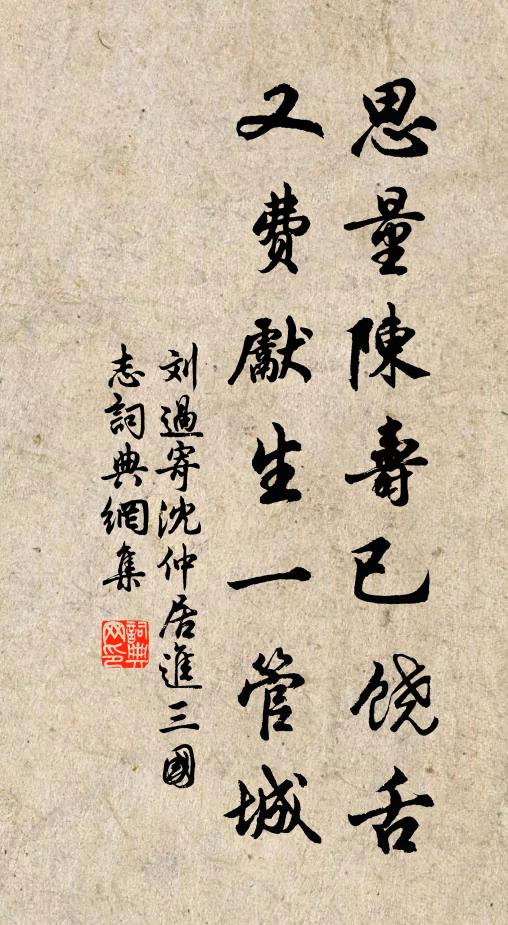 思量陳壽已饶舌
又费獻生一管城
刘過寄沈仲居進三國
志詞典網集
詞典网印